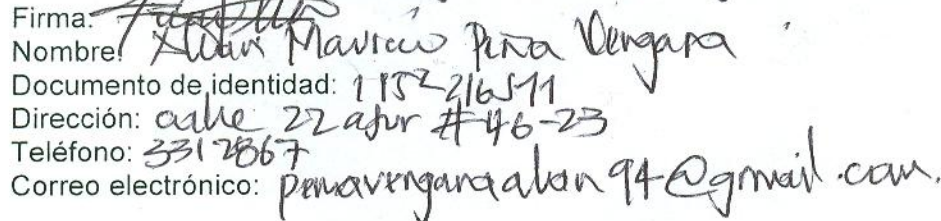 Firma:
Nombre: Alan Mauricio Piña Vergara
Documento de identidad: 1152216511
Dirección: calle 22 a sur #46-23
Teléfono: 3312867
Correo electrónico: pinavergaraalan94@gmail.com.